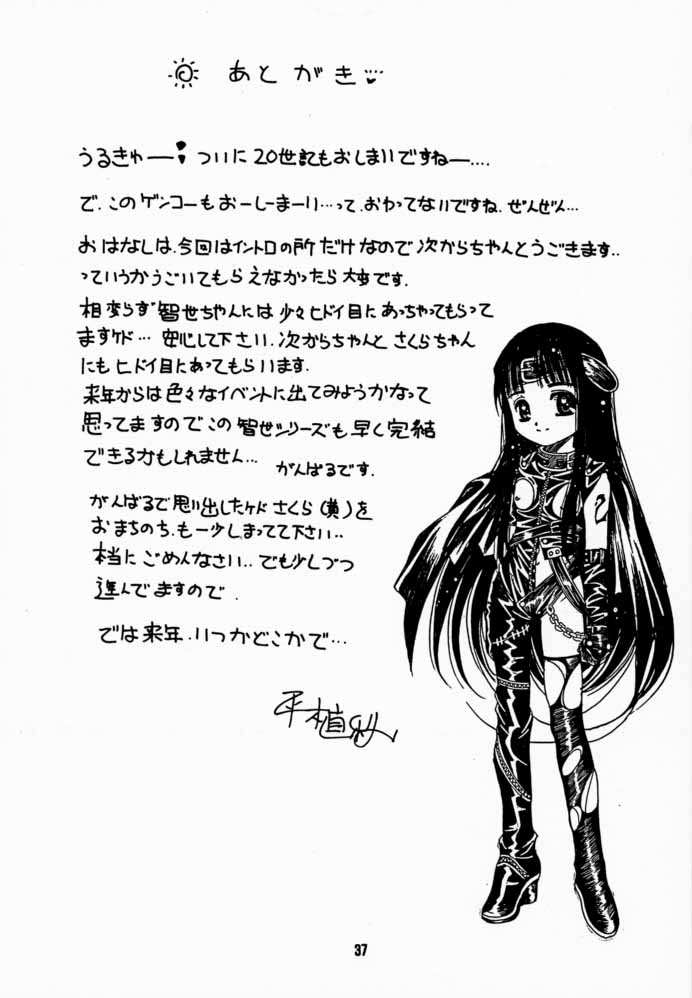 あとがき
うるきゅー! ついに20世記もおしまいですねー‥‥
で、このゲンコーもおーしーまーい…って、おわってないですね、ぜんぜん…
おはなしは、今回はイントロの所だけなので次からちゃんとうごきます‥
っていうかうごいてもらえなかったら大事です.
相変らず智世ちゃんには少々ヒドイ目にあっちゃってもらって
ますケド… 安心して下さい、次からちゃんとさくらちゃん
にもヒドイ目にあってもらいます.
来年からは色々なイベントに出てみようかなって
思ってますのでこの智世シリーズも早く完結
できるかもしれません… がんばるです.
がんばるで思い出したケドさくら(黄)を
おまちのち、も一少しまってて下さい‥
本当にごめんなさい‥でも少しづつ
進んでますので.
では来年、いつかどこかで…
37